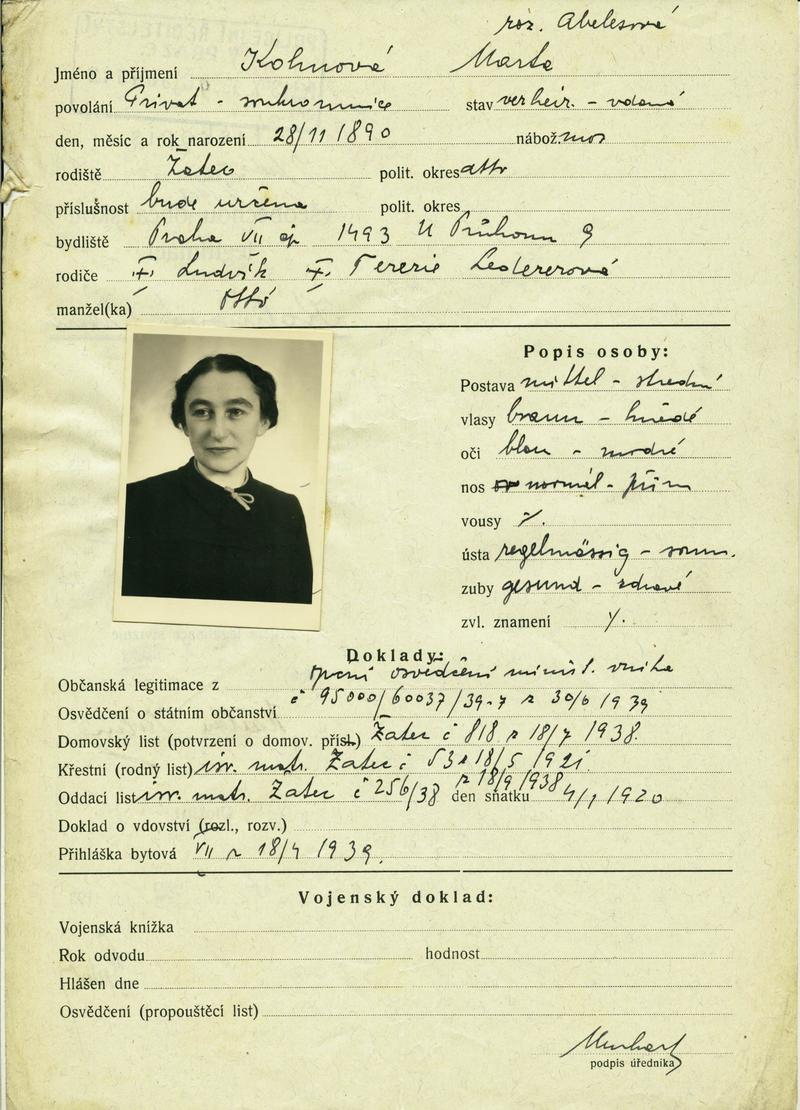 roz. Abelesová
Jméno a příjmení Kohnová Marta
povolání Privat - soukromnice stav verheir. - vdaná
den, měsíc a rok narození 28/11 1890 nábož. mos
rodiště Žatec polit. okres dtto
příslušnost bude určena polit. okres
bydliště Praha VII čp 1493 U Průhonu 9
rodiče Ludvík Terezie Ledererová
manžel(ka) Otto
Popis osoby:
Postava mittel - střední
vlasy braun - hnědé
oči blau - modré
nos normál - přím
vousy /.
ústa regelmässig - soum.
zuby gesund - zdravé
zvl. znamení /.
Doklady:
Občanská legitimace z
osvědčení minist. vnitra
Osvědčení o státním občanství č 95000/60037/39-7 z 30/6 1939
Domovský list (potvrzení o domov. přísl.) Žatec č 818 z 18/7 1938
Křestní (rodný list) isr. matr. Žatec č 53 z 18/5 1921
Oddací list isr. matr. Žatec č 256/38 z 18/9 1938 den sňatku 4/1 1920
Doklad o vdovství (rozl., rozv.)
Přihláška bytová VII z 18/4 1939.
Vojenský doklad:
Vojenská knížka
Rok odvodu hodnost
Hlášen dne
Osvědčení (propouštěcí list)
podpis úředníka